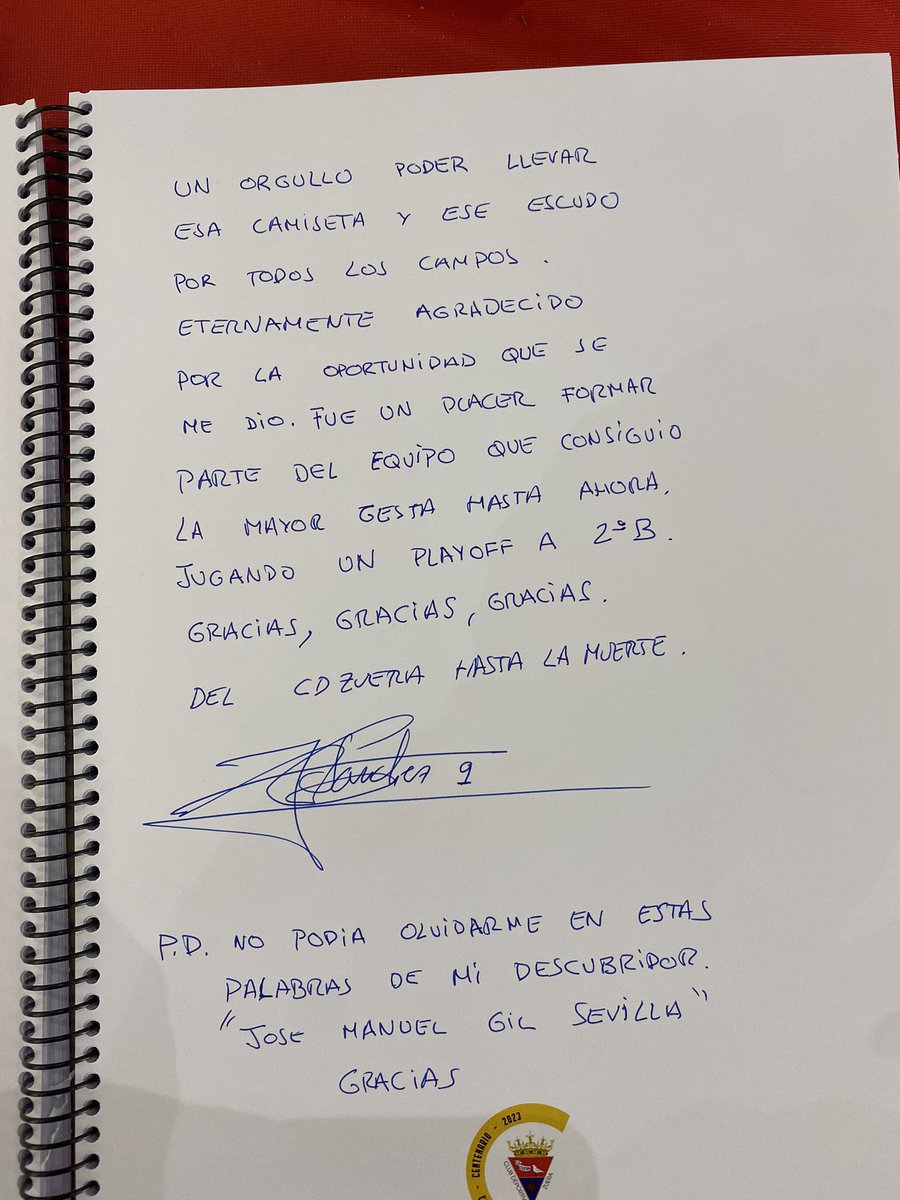 UN ORGULLO PODER LLEVAR
ESA CAMISETA Y ESE ESCUDO
POR TODOS LOS CAMPOS.
ETERNAMENTE AGRADECIDO
POR LA OPORTUNIDAD QUE SE
ME DIO. FUE UN PLACER FORMAR
PARTE DEL EQUIPO QUE CONSIGUIO
LA MAYOR GESTA HASTA AHORA.
JUGANDO UN PLAYOFF A 2ªB.
GRACIAS, GRACIAS, GRACIAS.
DEL CD ZUERA HASTA LA MUERTE.
9
P.D. NO PODIA OLVIDARME EN ESTAS
PALABRAS DE MI DESCUBRIDOR.
"JOSE MANUEL GIL SEVILLA"
GRACIAS
CENTENARIO - 2023
CLUB DEPORTIVO
ZUERA